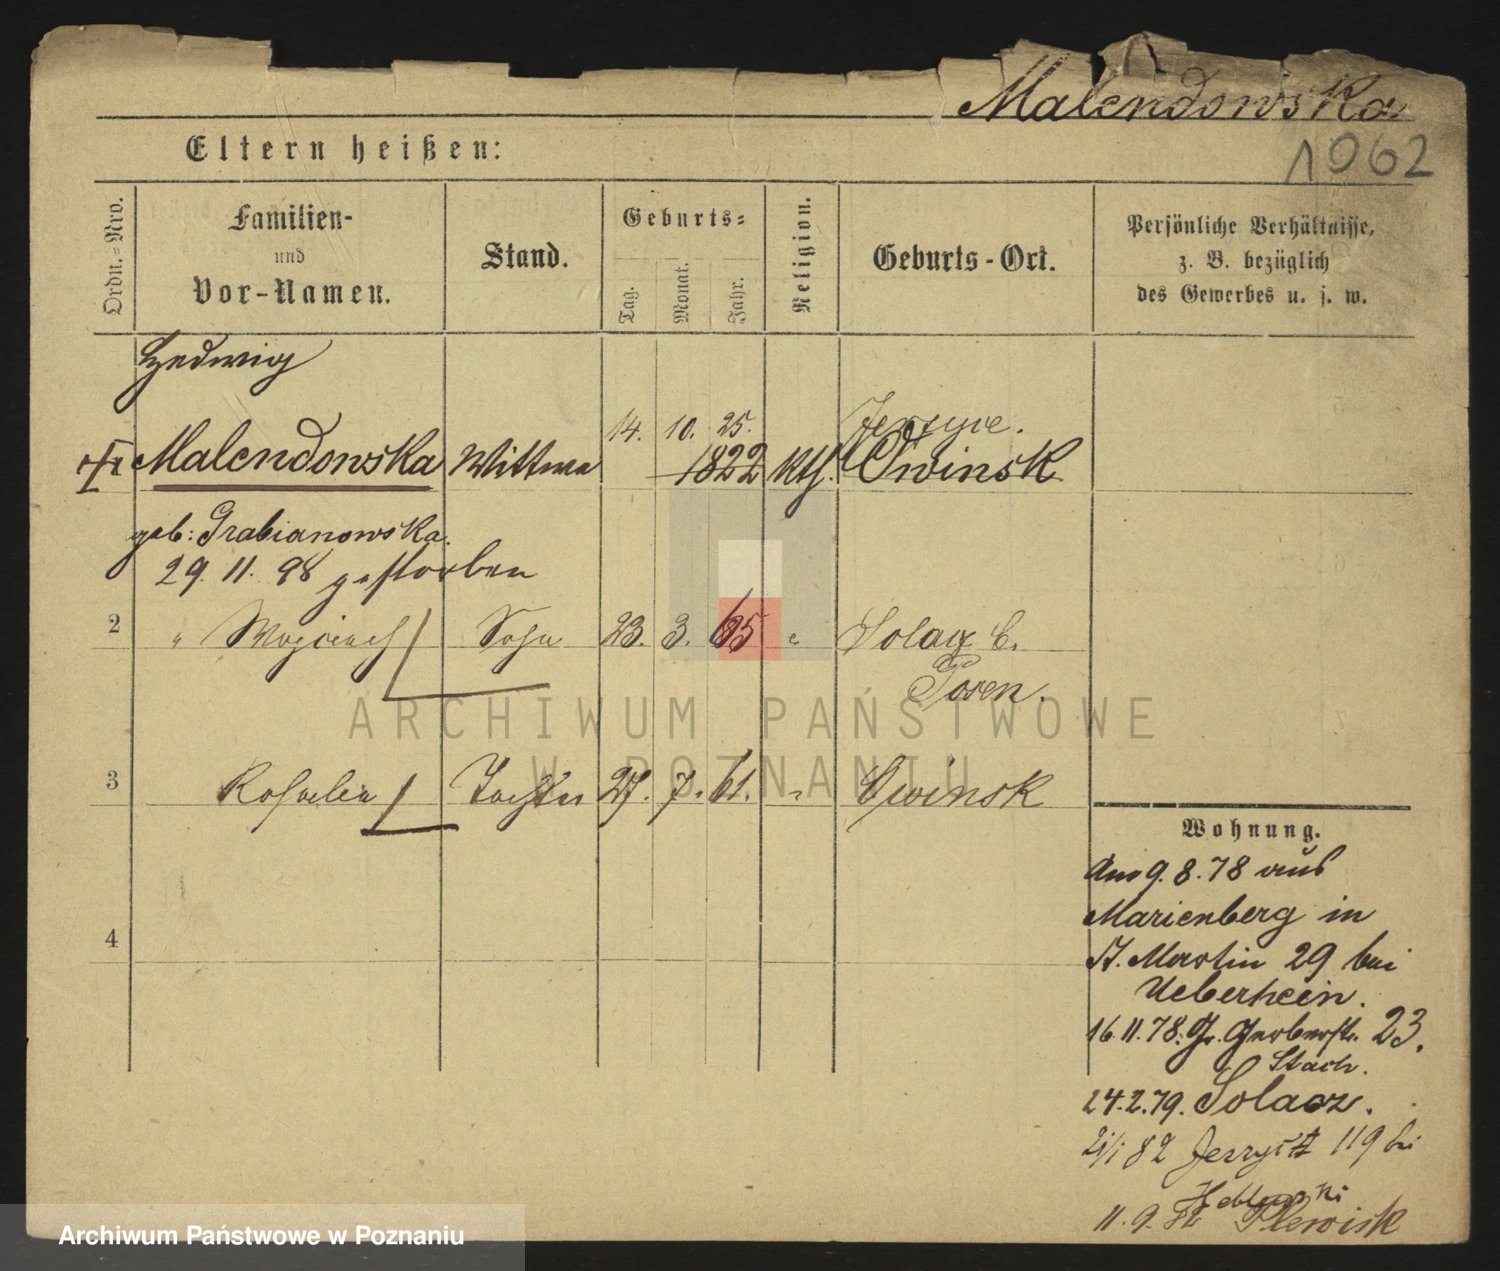 Malendowska
1062
Eltern heißen:
Ordn.-Nro.
Familien-
und
Vor-Namen.
Stand.
Geburts-
Tag.
Monat.
Jahr.
Religion.
Geburts-Ort.
Persönliche Verhältnisse,
z. B. bezüglich
des Gewerbes u. s. w.
Hedwig
14. 10. 25.
Malendowska Wittwe 1822 kth. Owinsk
geb: Grabianowska.
29. 11. 98 gestorben
2 " Wojciech Sohn 23. 3. 65 Solacz b.
Posen.
3 Rosalia Tochter 27. 7. 61. " Owinsk
4
Wohnung.
Am 9. 8. 78 aus
Marienberg in
St. Martin 29 bei
Ueberhein.
16. 11. 78. Gr. Gerberstr. 23.
Stach.
24. 2. 79. Solacz.
82 Jerzyce 119 bei
11. 9. Plewisk
ARCHIWUM PAŃSTWOWE
W POZNANIU
Archiwum Państwowe w Poznaniu